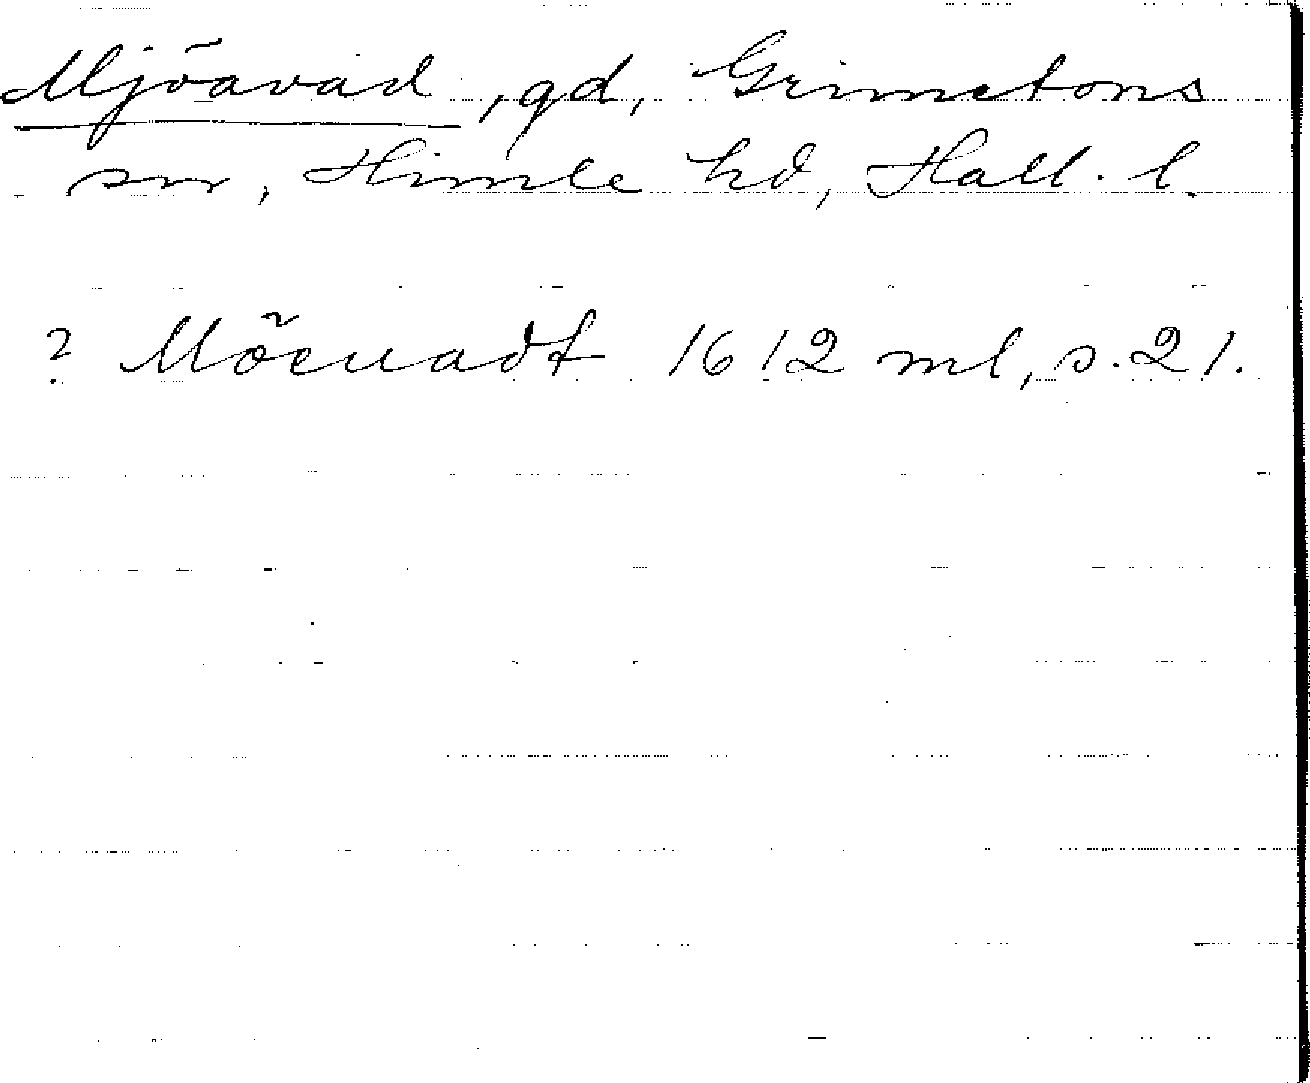 Mjöavad, gd, Grimetons
sn, Himle hd, Hall. l.
? Möeuadt 1612 ml, s. 21.